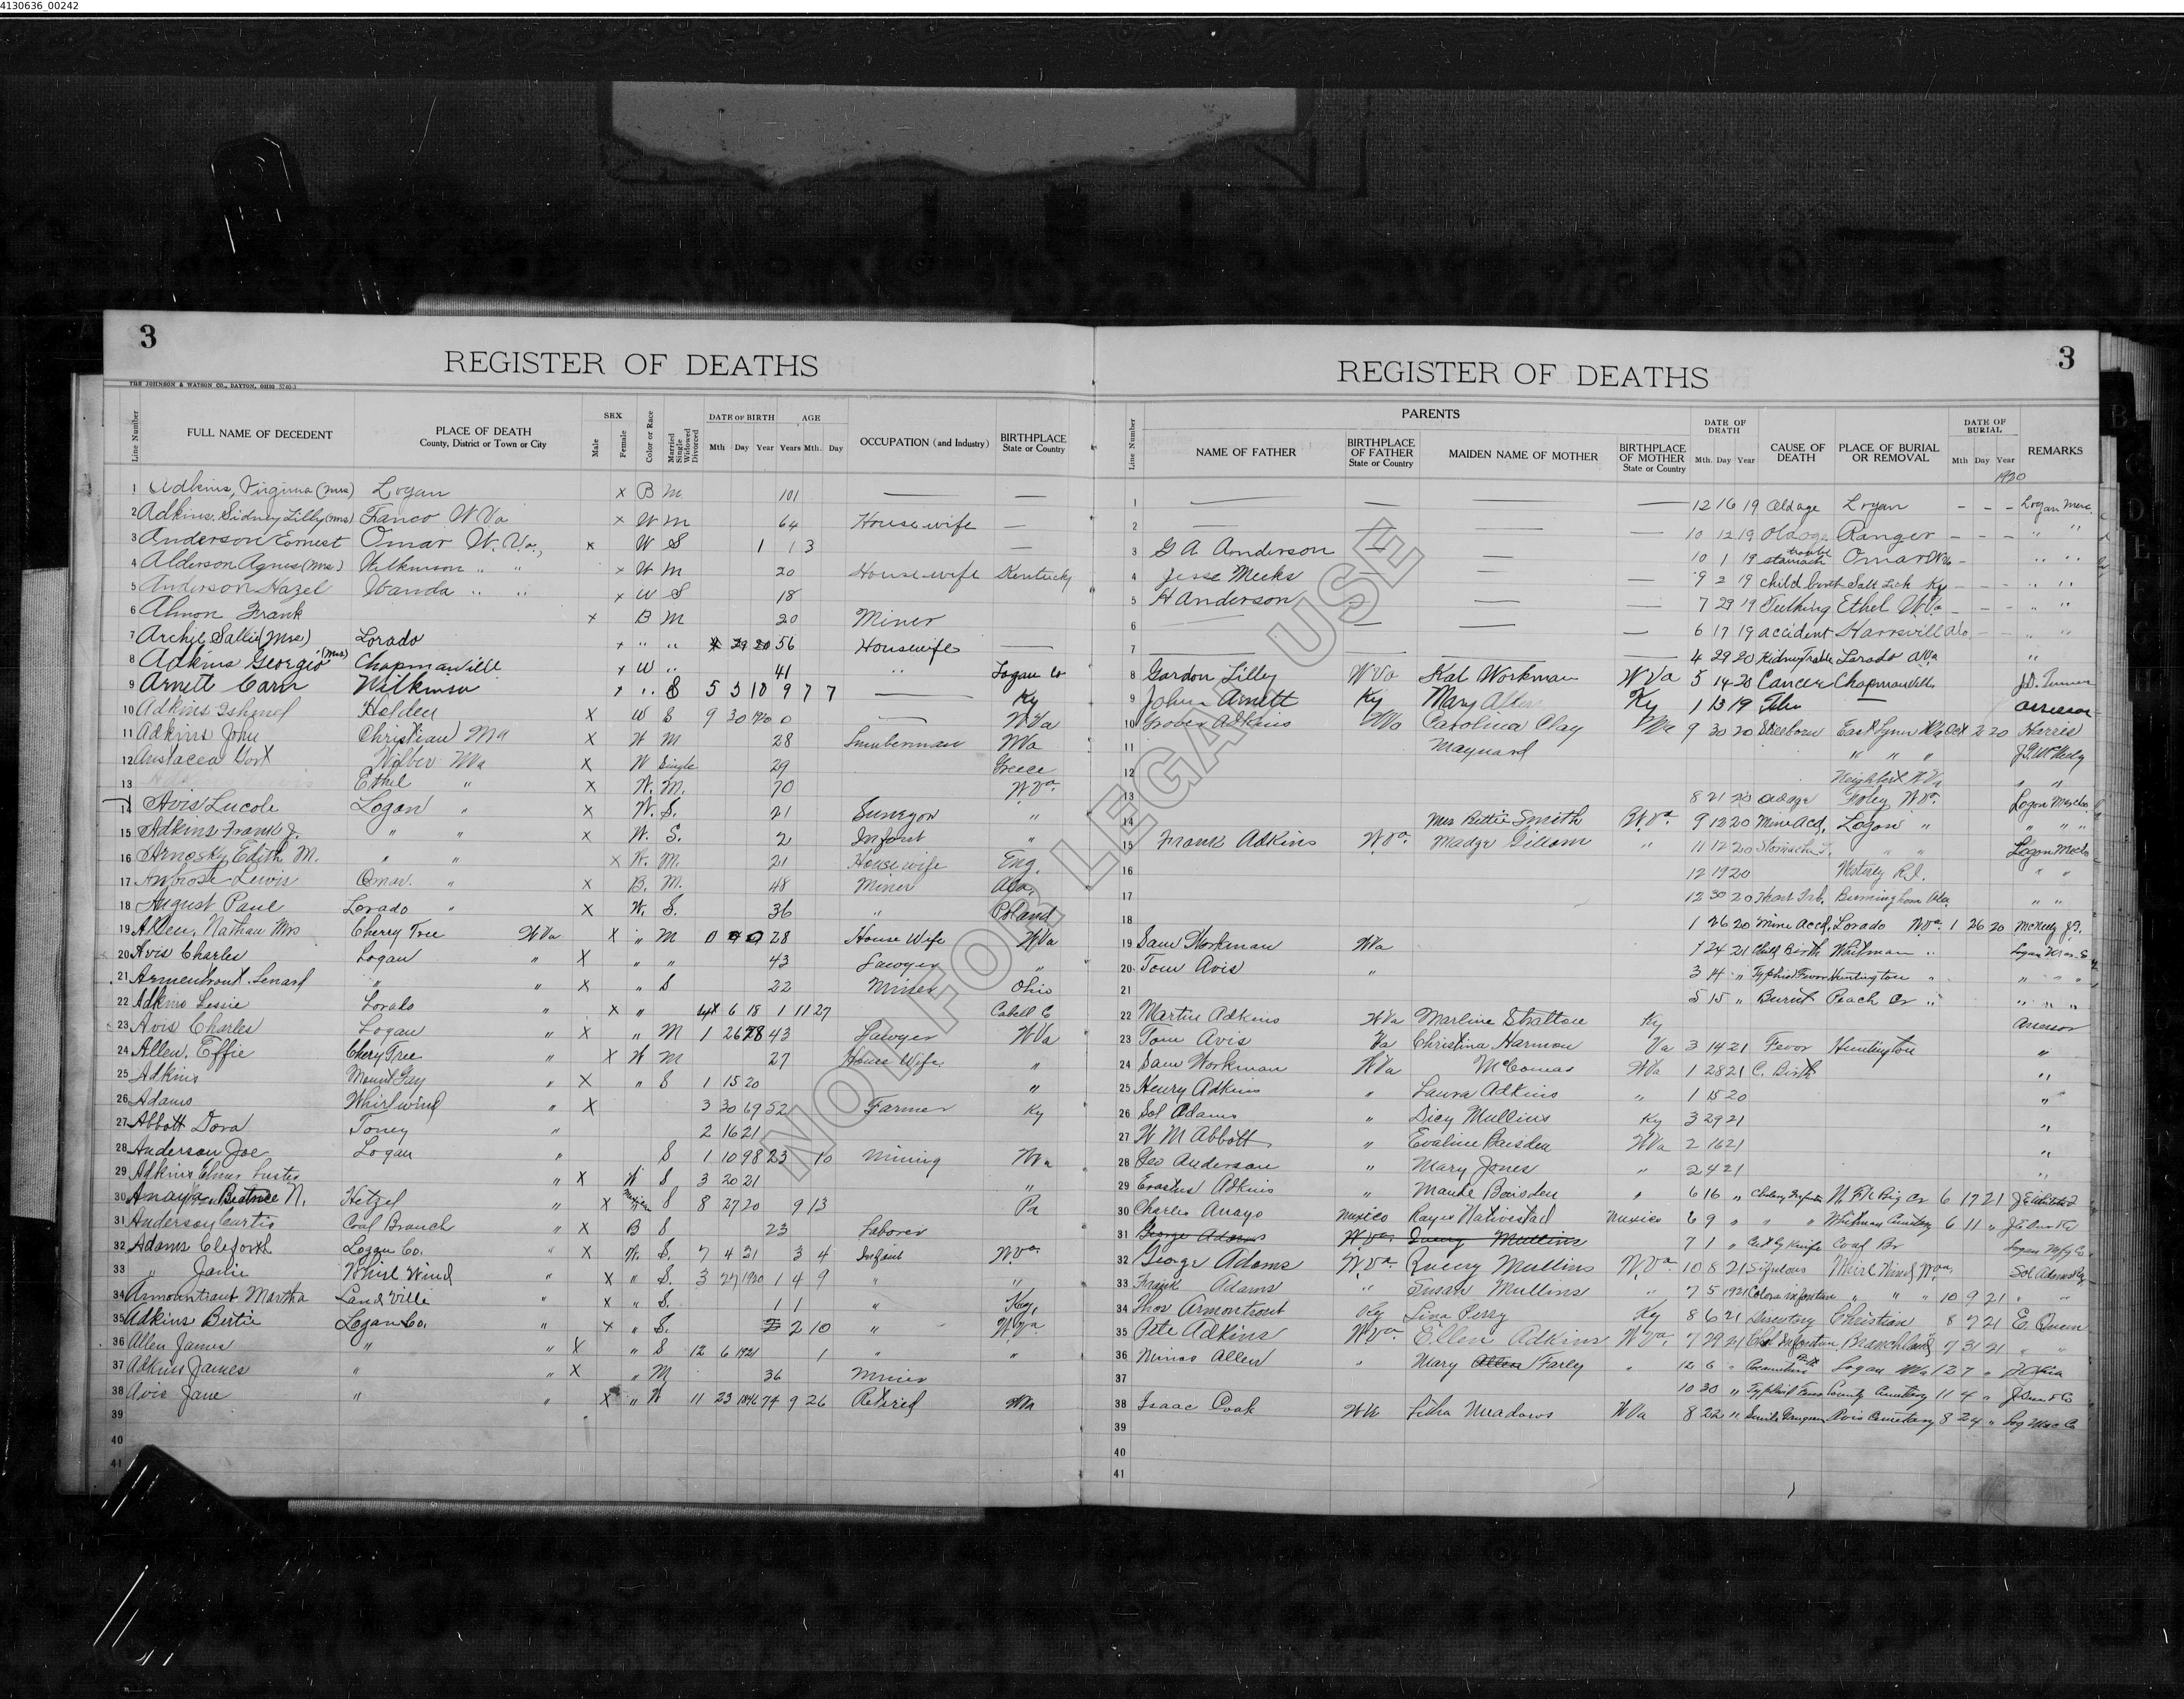 4130636_00242
3
REGISTER OF DEATHS
THE JOHNSON & WATSON CO., DAYTON, OHIO 5740-3
Line Number FULL NAME OF DECEDENT PLACE OF DEATH County, District or Town or City SEX Male Female Color or Race Married Single Widowed Divorced DATE OF BIRTH Mth Day Year AGE Years Mth. Day OCCUPATION (and Industry) BIRTHPLACE State or Country
1 Adkins, Virginia (Mrs) Logan x B M 101 — —
2 Adkins, Sidney Lilly (Mrs) Franco W Va x W M 64 House wife —
3 Anderson Earnest Omar W. Va., x W S 1 1 3 —
4 Alderson Agnes (Mrs) Wilkinson " " x W M 20 House wife Kentucky
5 Anderson Hazel Wanda " " x W S 18
6 Almon Frank x B M 20 Miner
7 Archie Sallie (Mrs) Lorado x " " 4 29 20 56 Housewife —
8 Adkins Georgie (Mrs) Chapmanville x W " 41 " Logan Co
9 Arnett Carr Wilkinson x " S 5 5 10 9 7 7 — Ky
10 Adkins Ishmel Holden X W S 9 30 1920 0 — W Va
11 Adkins John Christian W Va X W M 28 Lumberman W Va
12 Anstacea Gort Wilber W Va X W Single 29 Greece
13 Ethel " X W. M. 70 W. Va.
14 Avis Lucole Logan " X W. S. 21 Surveyor "
15 Adkins Frank J. " " X W. S. 2 Infant "
16 Arnosky Edith M. " " X W. M. 21 House wife Eng.
17 Ambrose Lewis Omar " X B. M. 48 Miner Ala.
18 August Paul Lorado " X W. S. 36 " Poland
19 Allen, Nathan Mrs Cherry Tree W Va X " M 28 House Wife W Va
20 Avis Charles Logan " X " " 43 Lawyer "
21 Armentrout Lenard " " X " S 22 Miner Ohio
22 Adkins Lessie Lorado " X " 6 18 1 11 27 Cabell C
23 Avis Charles Logan " X " M 1 26 78 43 Lawyer W Va
24 Allen, Effie Chery Tree " X W M 27 House Wife "
25 Adkins Mount Gay " X " S 1 15 20 "
26 Adams Whirlwind " X 3 30 69 52 Farmer Ky
27 Abbott Dora Toney " 2 16 21
28 Anderson Joe Logan " S 1 10 98 23 10 Mining W Va
29 Adkins Elmer Lustis " X W S 3 20 21 "
30 Anaya Beatrice N. Hetzel X Mexican S 8 27 20 9 13 Pa
31 Anderson Curtis Coal Branch " X B S 23 Laborer
32 Adams Cleforth Logan Co. " X W. S. 7 4 21 3 4 Infant W. Va.
33 " Janie Whirl Wind " X " S. 3 27 1920 1 4 9 " "
34 Armountrout Martha Land Ville " X " S. 1 1 " Key.
35 Adkins Bertie Logan Co. " X " S. 2 10 " W Va
36 Allen James " " X " S 12 6 1921 1 " "
37 Adkins James " " X " M 36 Miner
38 Avis Jane " " X " W 11 23 1846 74 9 26 Retired W Va
39
40
41
3
REGISTER OF DEATHS
Line Number PARENTS NAME OF FATHER BIRTHPLACE OF FATHER State or Country MAIDEN NAME OF MOTHER BIRTHPLACE OF MOTHER State or Country DATE OF DEATH Mth. Day Year CAUSE OF DEATH PLACE OF BURIAL OR REMOVAL DATE OF BURIAL Mth Day Year REMARKS
1920
1 — — — — 12 16 19 Old age Logan - - - Logan Merc.
2 — — — — 10 12 19 Old age Ranger - - - "
3 G A Anderson — — 10 1 19 stomach trouble Omar W Va - " "
4 Jesse Meeks — — — 9 2 19 child birth Salt Lick Ky - - - " "
5 H Anderson — — — 7 29 19 Ethel W Va - - - " "
6 — — — — 6 17 19 accident Harrsvill Ala - - " "
7 — — 4 29 20 Kidney Trouble Lorado W Va "
8 Gordon Lilley W Va Kat Workman W Va 5 14 20 Cancer Chapmanville J.D. Turner
9 John Arnett Ky Mary Allen Ky 1 13 19 — Assessor
10 Grover Adkins W Va Carolina Clay W Va 9 30 20 Stillborn East Lynn W Va Oct 2 20 Harris
11 Maynard " " " J.G. McNeely
12 Neighbert W Va " "
13 8 21 20 Old age Foley W Va. Logan Merc Co
14 Mrs Bettie Smith W. Va 9 12 20 Mine Acd. Logan " " " "
15 Frank Adkins W. Va. Madge Gilliam " 11 12 20 Stomach T. " " Logan Merc Co
16 12 19 20 Westerly R.I. " "
17 12 30 20 Heart Trb. Birmingham Ala " "
18 1 26 20 Mine Accd. Lorado W. Va. 1 26 20 McNeely J.G.
19 Sam Workman W Va 1 24 21 Child Birth Whitman "
20 Tom Avis " 3 14 " Typhiod Fevor Huntington " " "
21 5 15 " Burnt Peach Cr " " " "
22 Martin Adkins W Va Marline Stratton Ky Assessor
23 Tom Avis Va Christina Harmon Va 3 14 21 Fevor Huntington "
24 Sam Workman W Va McComas W Va 1 28 21 C. Birth "
25 Henry Adkins " Laura Adkins " 1 15 20 "
26 Sol Adams " Dicy Mullins Ky 3 29 21 "
27 W M Abbott " Evaline Baisden W Va 2 16 21 "
28 Geo Anderson " Mary Jones " 2 4 21 "
29 Erastus Adkins " Maude Baisden " 6 16 " N. Frk Big Cr 6 17 21
30 Charles Anayo Mexico Rayes Nativestad Mexico 6 9 " " " Whitman Cemetery 6 11 "
31 George Adams W Va. Queeny Mullins 7 1 " Cut by Knife Coal Br Logan Mfg Co
32 George Adams W. Va. Queeny Mullins W. Va. 10 8 21 Whirl Wind W. Va. Sol Adams
33 Frank Adams " Susan Mullins " 7 5 1921 " " " 10 9 21 " "
34 Thos Armontrout Ky Lina Perry Ky 8 6 21 Christian 8 7 21 E. Queen
35 Pete Adkins W. Va. Ellen Adkins W Va. 7 29 21 Branchland 7 31 21 " "
36 Minos Allen " Mary Allen Farley " 12 6 " Logan W Va 12 7 "
37 10 30 " Typhiod Fever County Cemetery 11 4 "
38 Isaac Cook W Va Litha Meadows W Va 8 22 " Avis Cemetery 8 24 " Log Merc Co
39
40
41
NOT FOR LEGAL USE